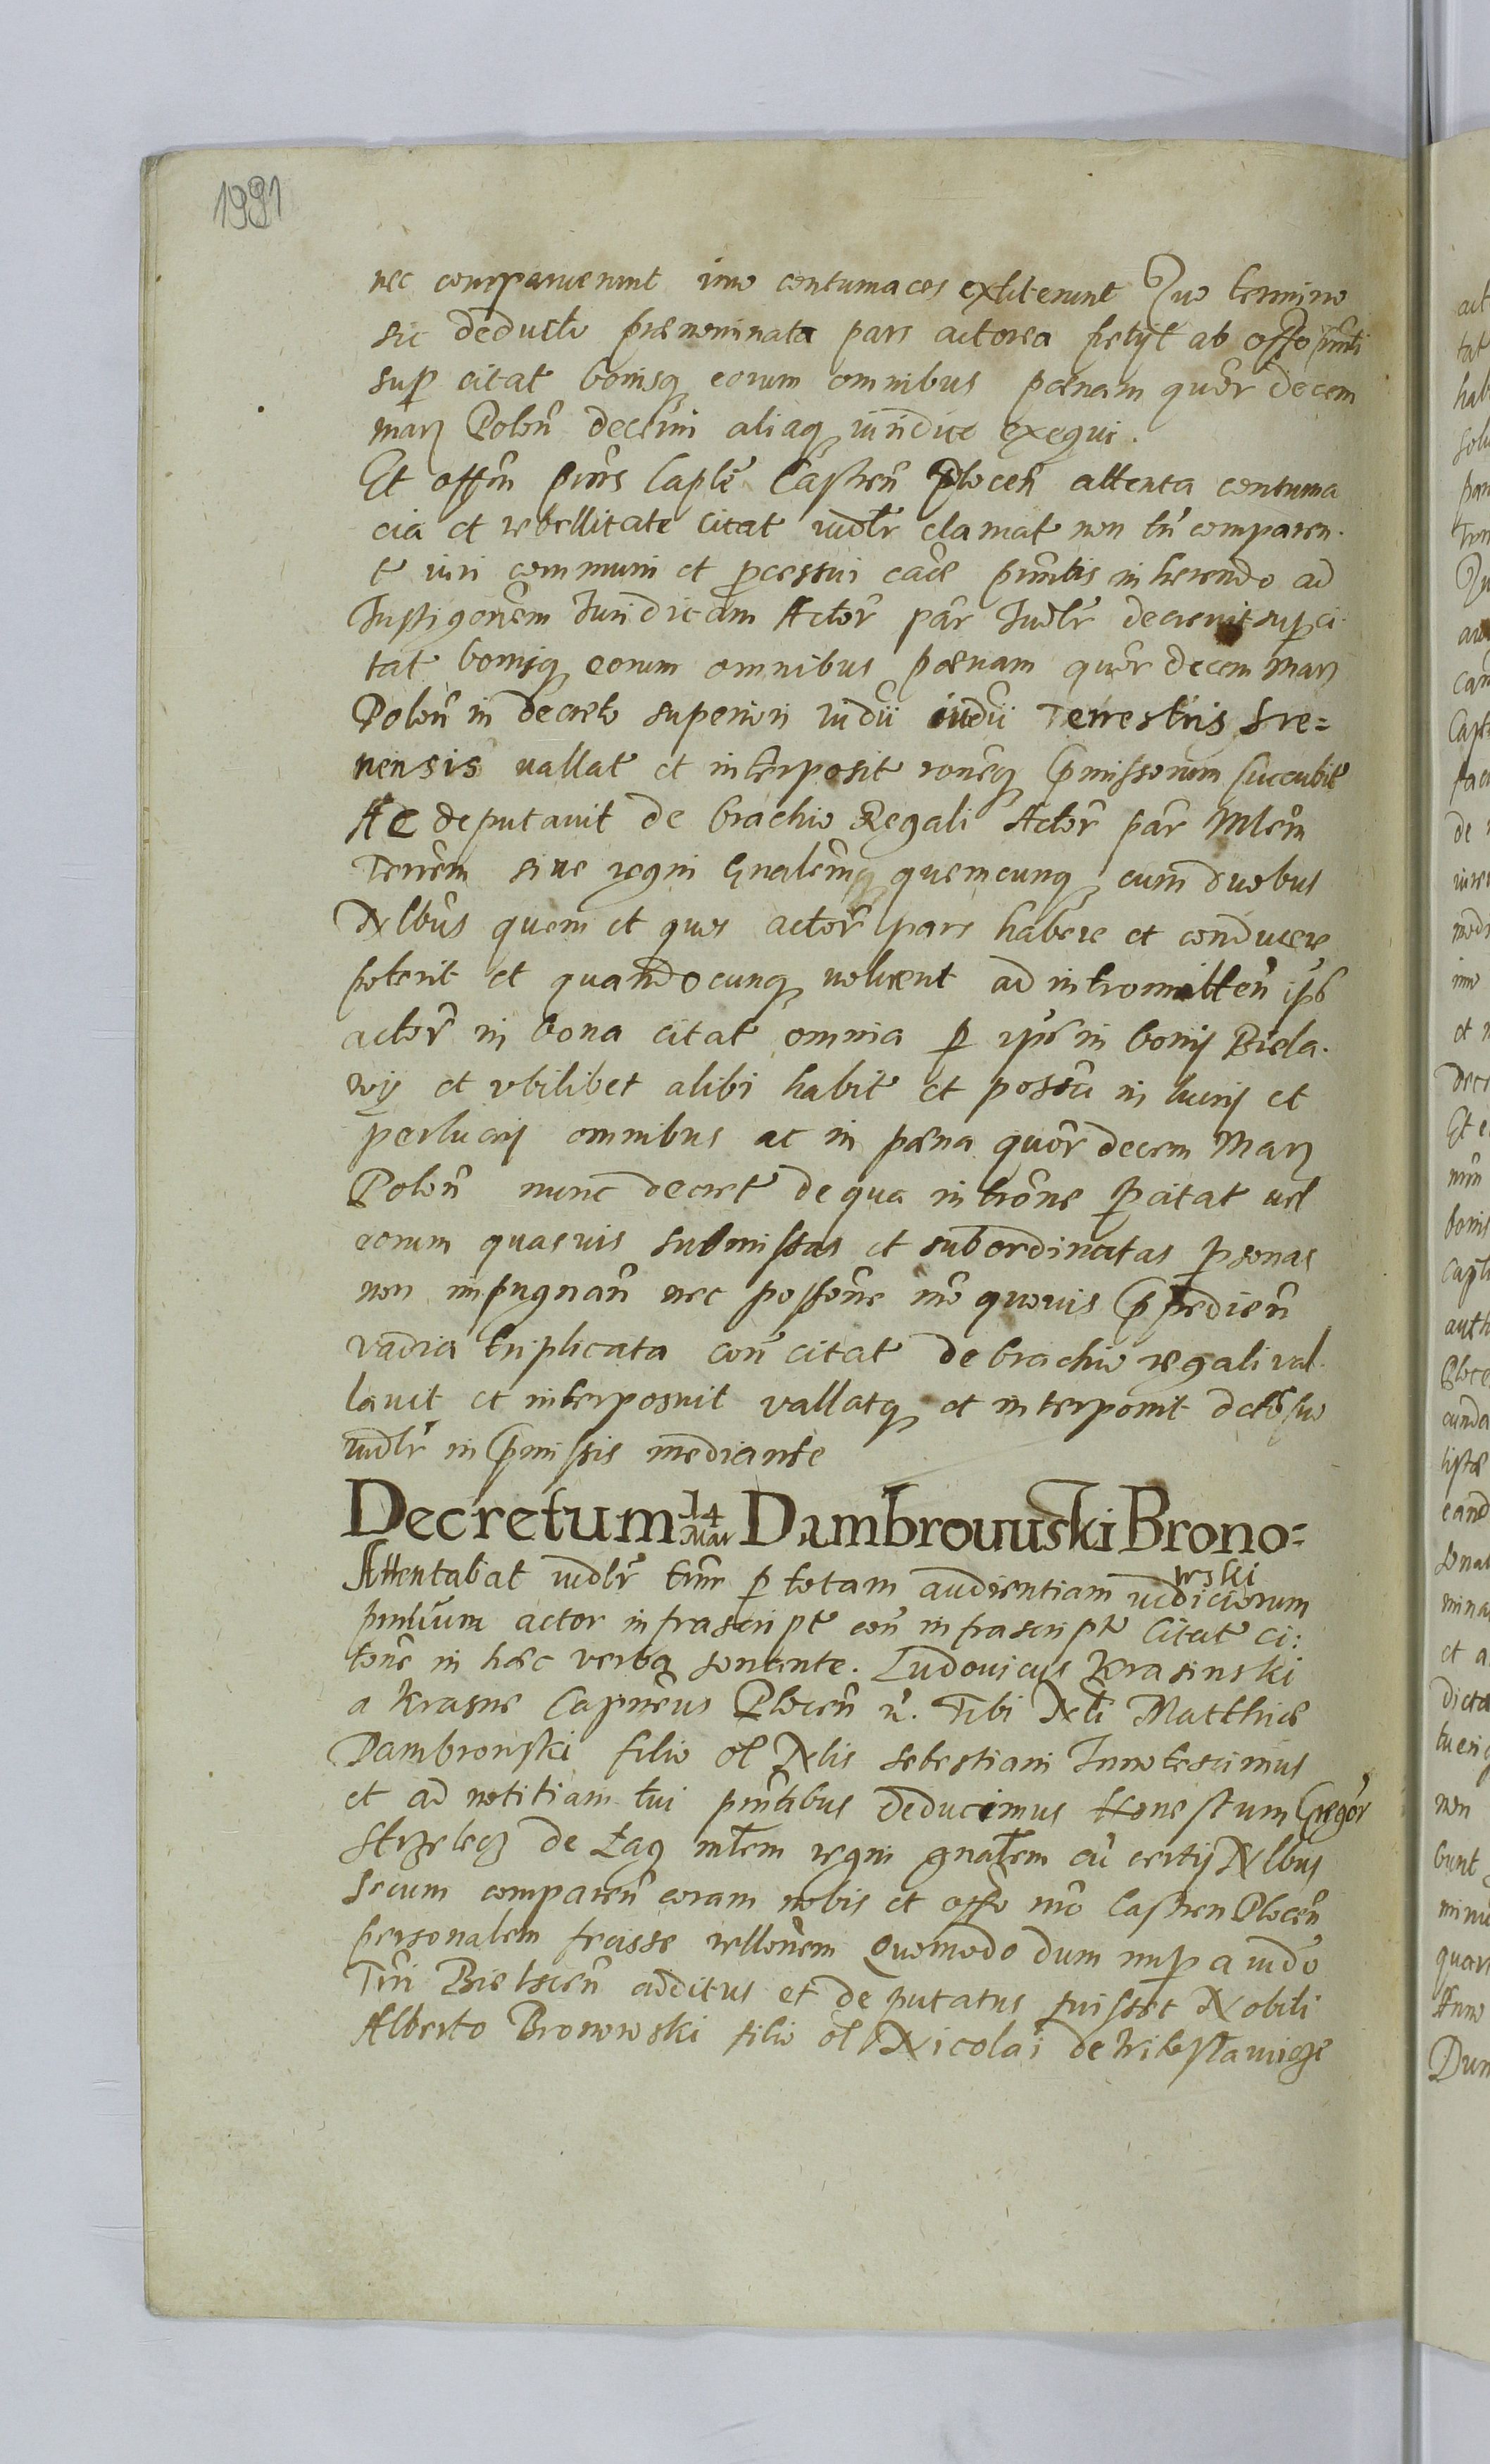 1991
nec comparuerunt imo contumaces extiterunt Quo termino
sic deducto prænominata pars actorea petijt ab offo pnti
sup citat bonisq eorum omnibus pænam quor decem
marz Polon decerni aliaq iuridice exequi.
Et offm pnts Caple Castren Plocen attenta contuma
cia et rebellitate citat iudlr clamat non tn comparen.
t iuri communi et pcessui cause pnntis inherendo ad
Instigonem Iuridicam Actor par Iudlr decreuit sup ci.
tat bonisq eorum omnibus pænam quor decem marz
Polon in decreto superiori iudii iudii Terrestris Sre=
nensis vallat et interposit roneq pmissorum succubit
Ac deputauit de brachio Regali Actor par Mlem
Terrem siue regni Gnalemq quemcunq cum duobus
Nlbus quem et quos actor pars habere et conducere
poterit et quandocunq voluerit ad intromitten ips
actor in bona citat omnia p ips in bonis Biela.
wy et vbilibet alibi habit et possu in lucris et
perlucris omnibus ac in pæna quor decem Marz
Polon nunc decret de qua introne p citat vel
eorum quasuis submissas et subordinatas psonas
non impugnan nec possone mo quouis ppedien
vadia triplicata con citat de brachio regali val.
lauit et interposuit vallatq et interponit dcto suo
iudlr in pmissis mediante
Decretum 14 Mar Dambrouuski Brono=
wski
Attentabat iudlr tmr p totam audientiam iudiciorum
pntium actor infrascript con infrascript citat ci:
tone in hæc verba sonante. Ludouicus Krasinski
a Krasne Capneus Plocen n. Tibi Nli Matthiæ
Dambrowski filio ol Nlis Sebestiani Innotescimus
et ad notitiam tui pntibus deducimus Honestum Gregor
Strzelecz de Łag mlem regni gnalem cu certis Nlbus
secum comparen coram nobis et offo nro Castren Plocen
personalem fecisse rellonem Quomodo dum nup a iudo
Tri Bielscen additus et deputatus fuisset Nobili
Alberto Bronowski filio ol Nicolai de